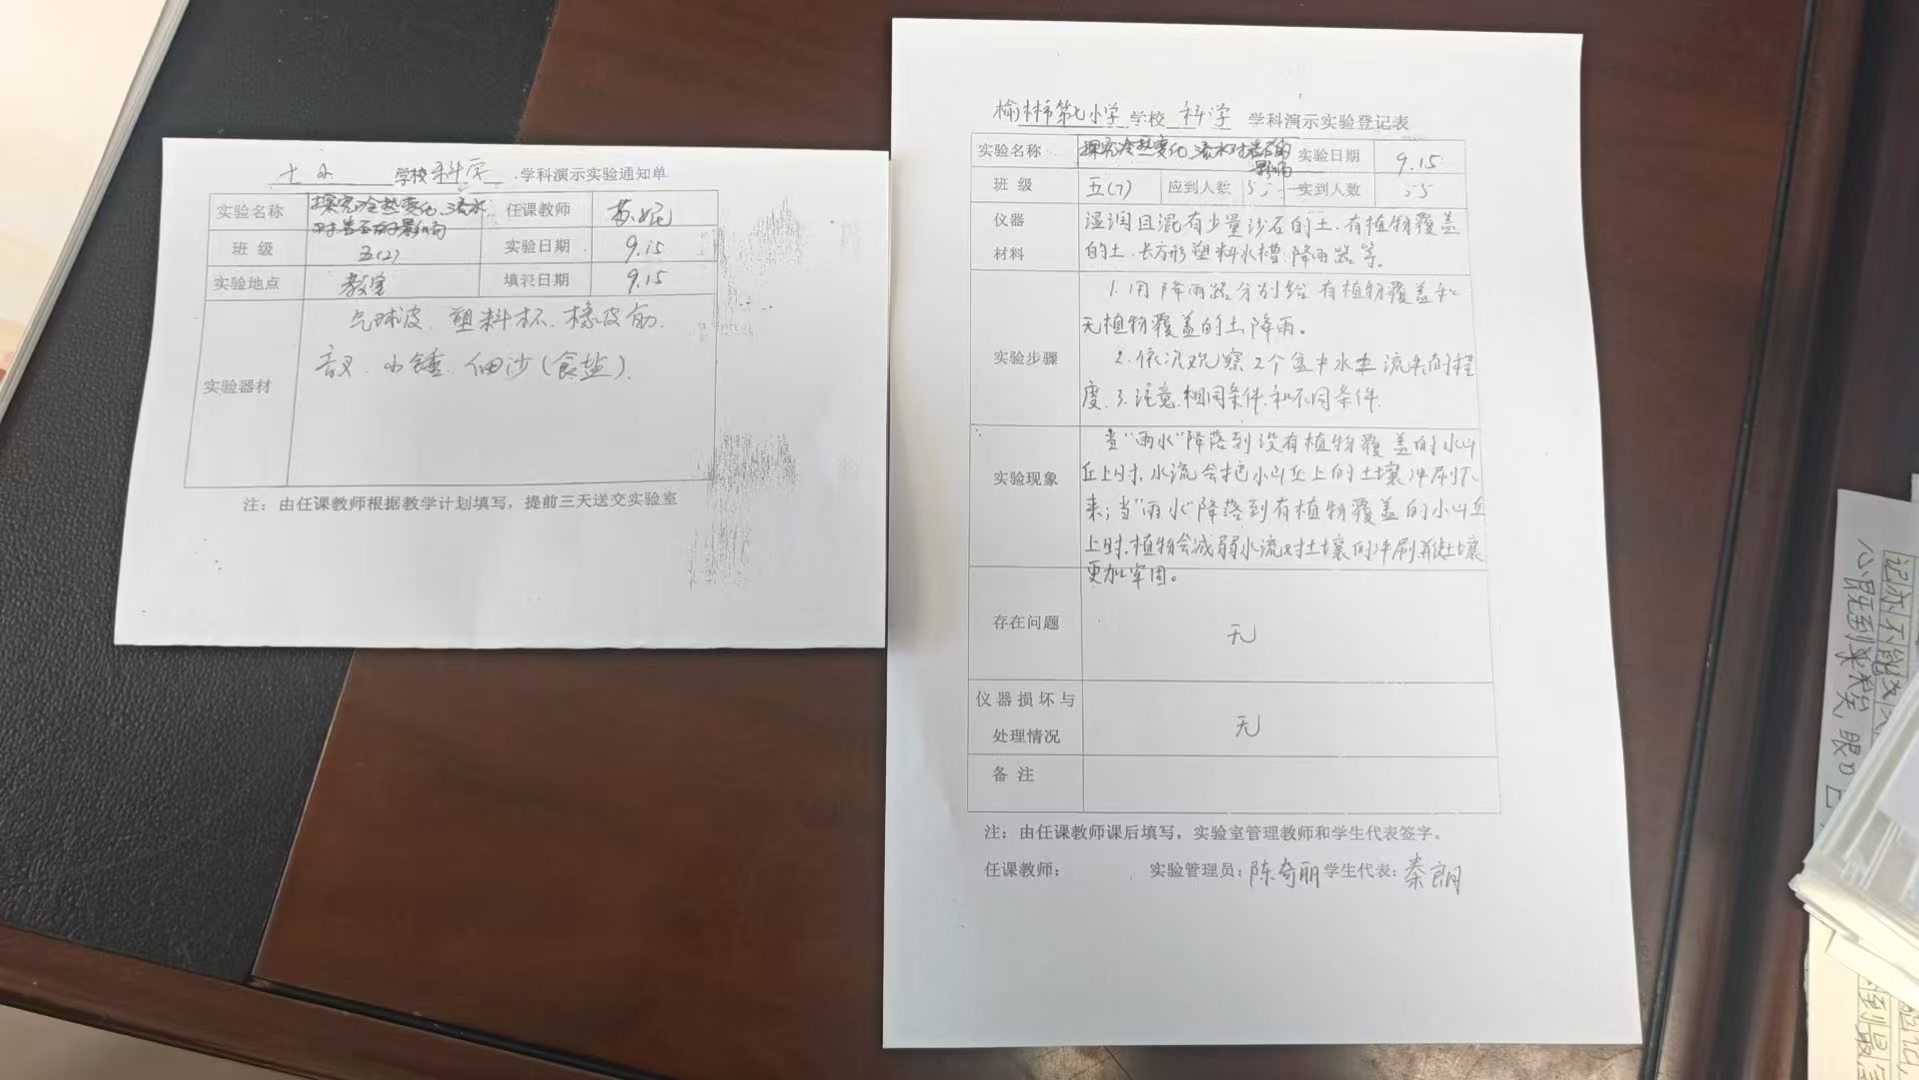 七小 学校 科学 学科演示实验通知单
实验名称 探究冷热变化、流水对岩石的影响 任课教师 苏妮
班 级 五(2) 实验日期 9.15
实验地点 教室 填表日期 9.15
实验器材 气球皮、塑料杯、橡皮筋、
音叉、小锤、细沙(食盐)、
注：由任课教师根据教学计划填写，提前三天送交实验室
榆林市第七小学 学校 科学 学科演示实验登记表
实验名称 探究冷热变化、流水对岩石的影响 实验日期 9.15
班 级 五(7) 应到人数 55 实到人数 55
仪器 湿润且混有少量沙石的土、有植物覆盖
材料 的土、长方形塑料水槽、降雨器等。
1.用降雨器分别给有植物覆盖和
无植物覆盖的土降雨。
实验步骤 2.依次观察2个盒中水土流失的程
度、3.注意相同条件和不同条件.
当“雨水”降落到没有植物覆盖的小山
丘上时，水流会把小山丘上的土壤冲刷下
实验现象
来；当“雨水”降落到有植物覆盖的小山丘
上时，植物会减弱水流对土壤的冲刷，使土壤
更加牢固。
存在问题 无
仪器损坏与
处理情况 无
备 注
注：由任课教师课后填写，实验室管理教师和学生代表签字。
任课教师： 实验管理员：陈奇丽 学生代表：秦朗